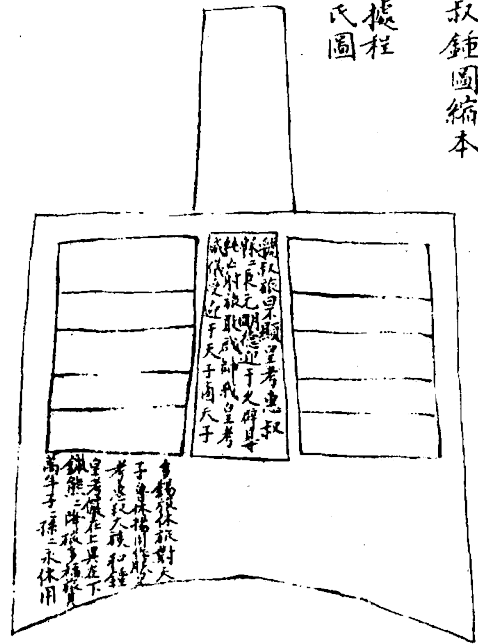 叔鍾圖縮本
據程
氏圖
虢叔旅曰不顯皇考惠叔
二秉元明德于久辟
純亡旅敢帥我皇考
威儀受于天子卣天子
多錫旅休旅對天
子魯休揚用作朕皇
考惠叔大和鍾
皇考儼在上異在下
熊二降旅多福旅其
萬年子二孫二永休用